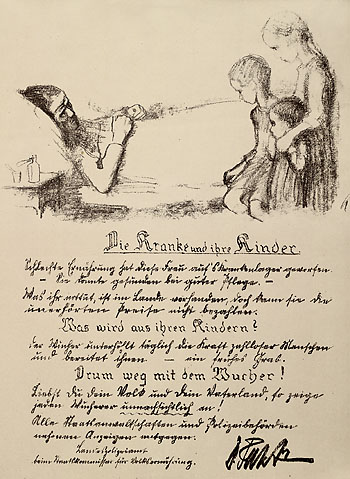 Die Kranke und ihre Kinder.
Schlechte Ernährung hat diese Frau auf's Krankenlager geworfen.
– Sie könnte gesunden bei guter Pflege. –
Was ihr nottut, ist im Lande vorhanden, doch kann sie die
unerhörten Preise nicht bezahlen.
Was wird aus ihren Kindern?
Der Wucher unterhöhlt täglich die Kraft zahlloser Menschen
und bereitet ihnen – ein frühes Grab.
Drum weg mit dem Wucher!
Liebst Du dein Volk und dein Vaterland, so zeige
jeden Wucherer unnachsichtlich an!
Alle Staatsanwaltschaften und Polizeibehörden
nehmen Anzeigen entgegen.
Landespolizeiamt
beim Staatskommissar für Volksernährung.